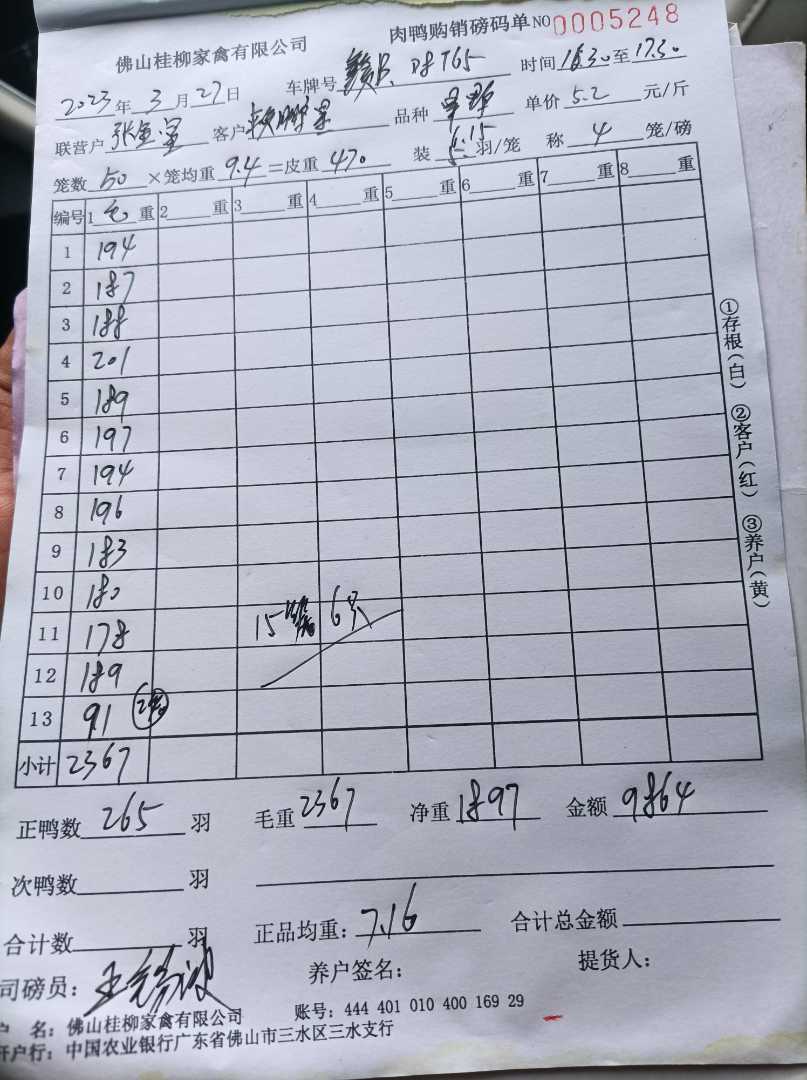 佛山桂柳家禽有限公司 肉鸭购销磅码单 NO 0005248
2023年3月27日 车牌号 时间 16:30至17:30
联营户 客户 品种 单价 5.2 元/斤
笼数 50 ×笼均重 9.4 =皮重 470 装 5 6.15 羽/笼 称 4 笼/磅
编号 1 毛 重 2 重 3 重 4 重 5 重 6 重 7 重 8 重
1 194
2 187
3 188
4 201
5 189
6 197
7 194
8 196
9 183
10 180
11 178 15笼 6只
12 189
13 91 2笼
小计 2367
正鸭数 265 羽 毛重 2367 净重 1897 金额 9864
次鸭数 羽
合计数 羽 正品均重: 7.16 合计总金额
司磅员: 养户签名: 提货人:
户 名: 佛山桂柳家禽有限公司 账号: 444 401 010 400 169 29
开户行: 中国农业银行广东省佛山市三水区三水支行
①存根(白) ②客户(红) ③养户(黄)